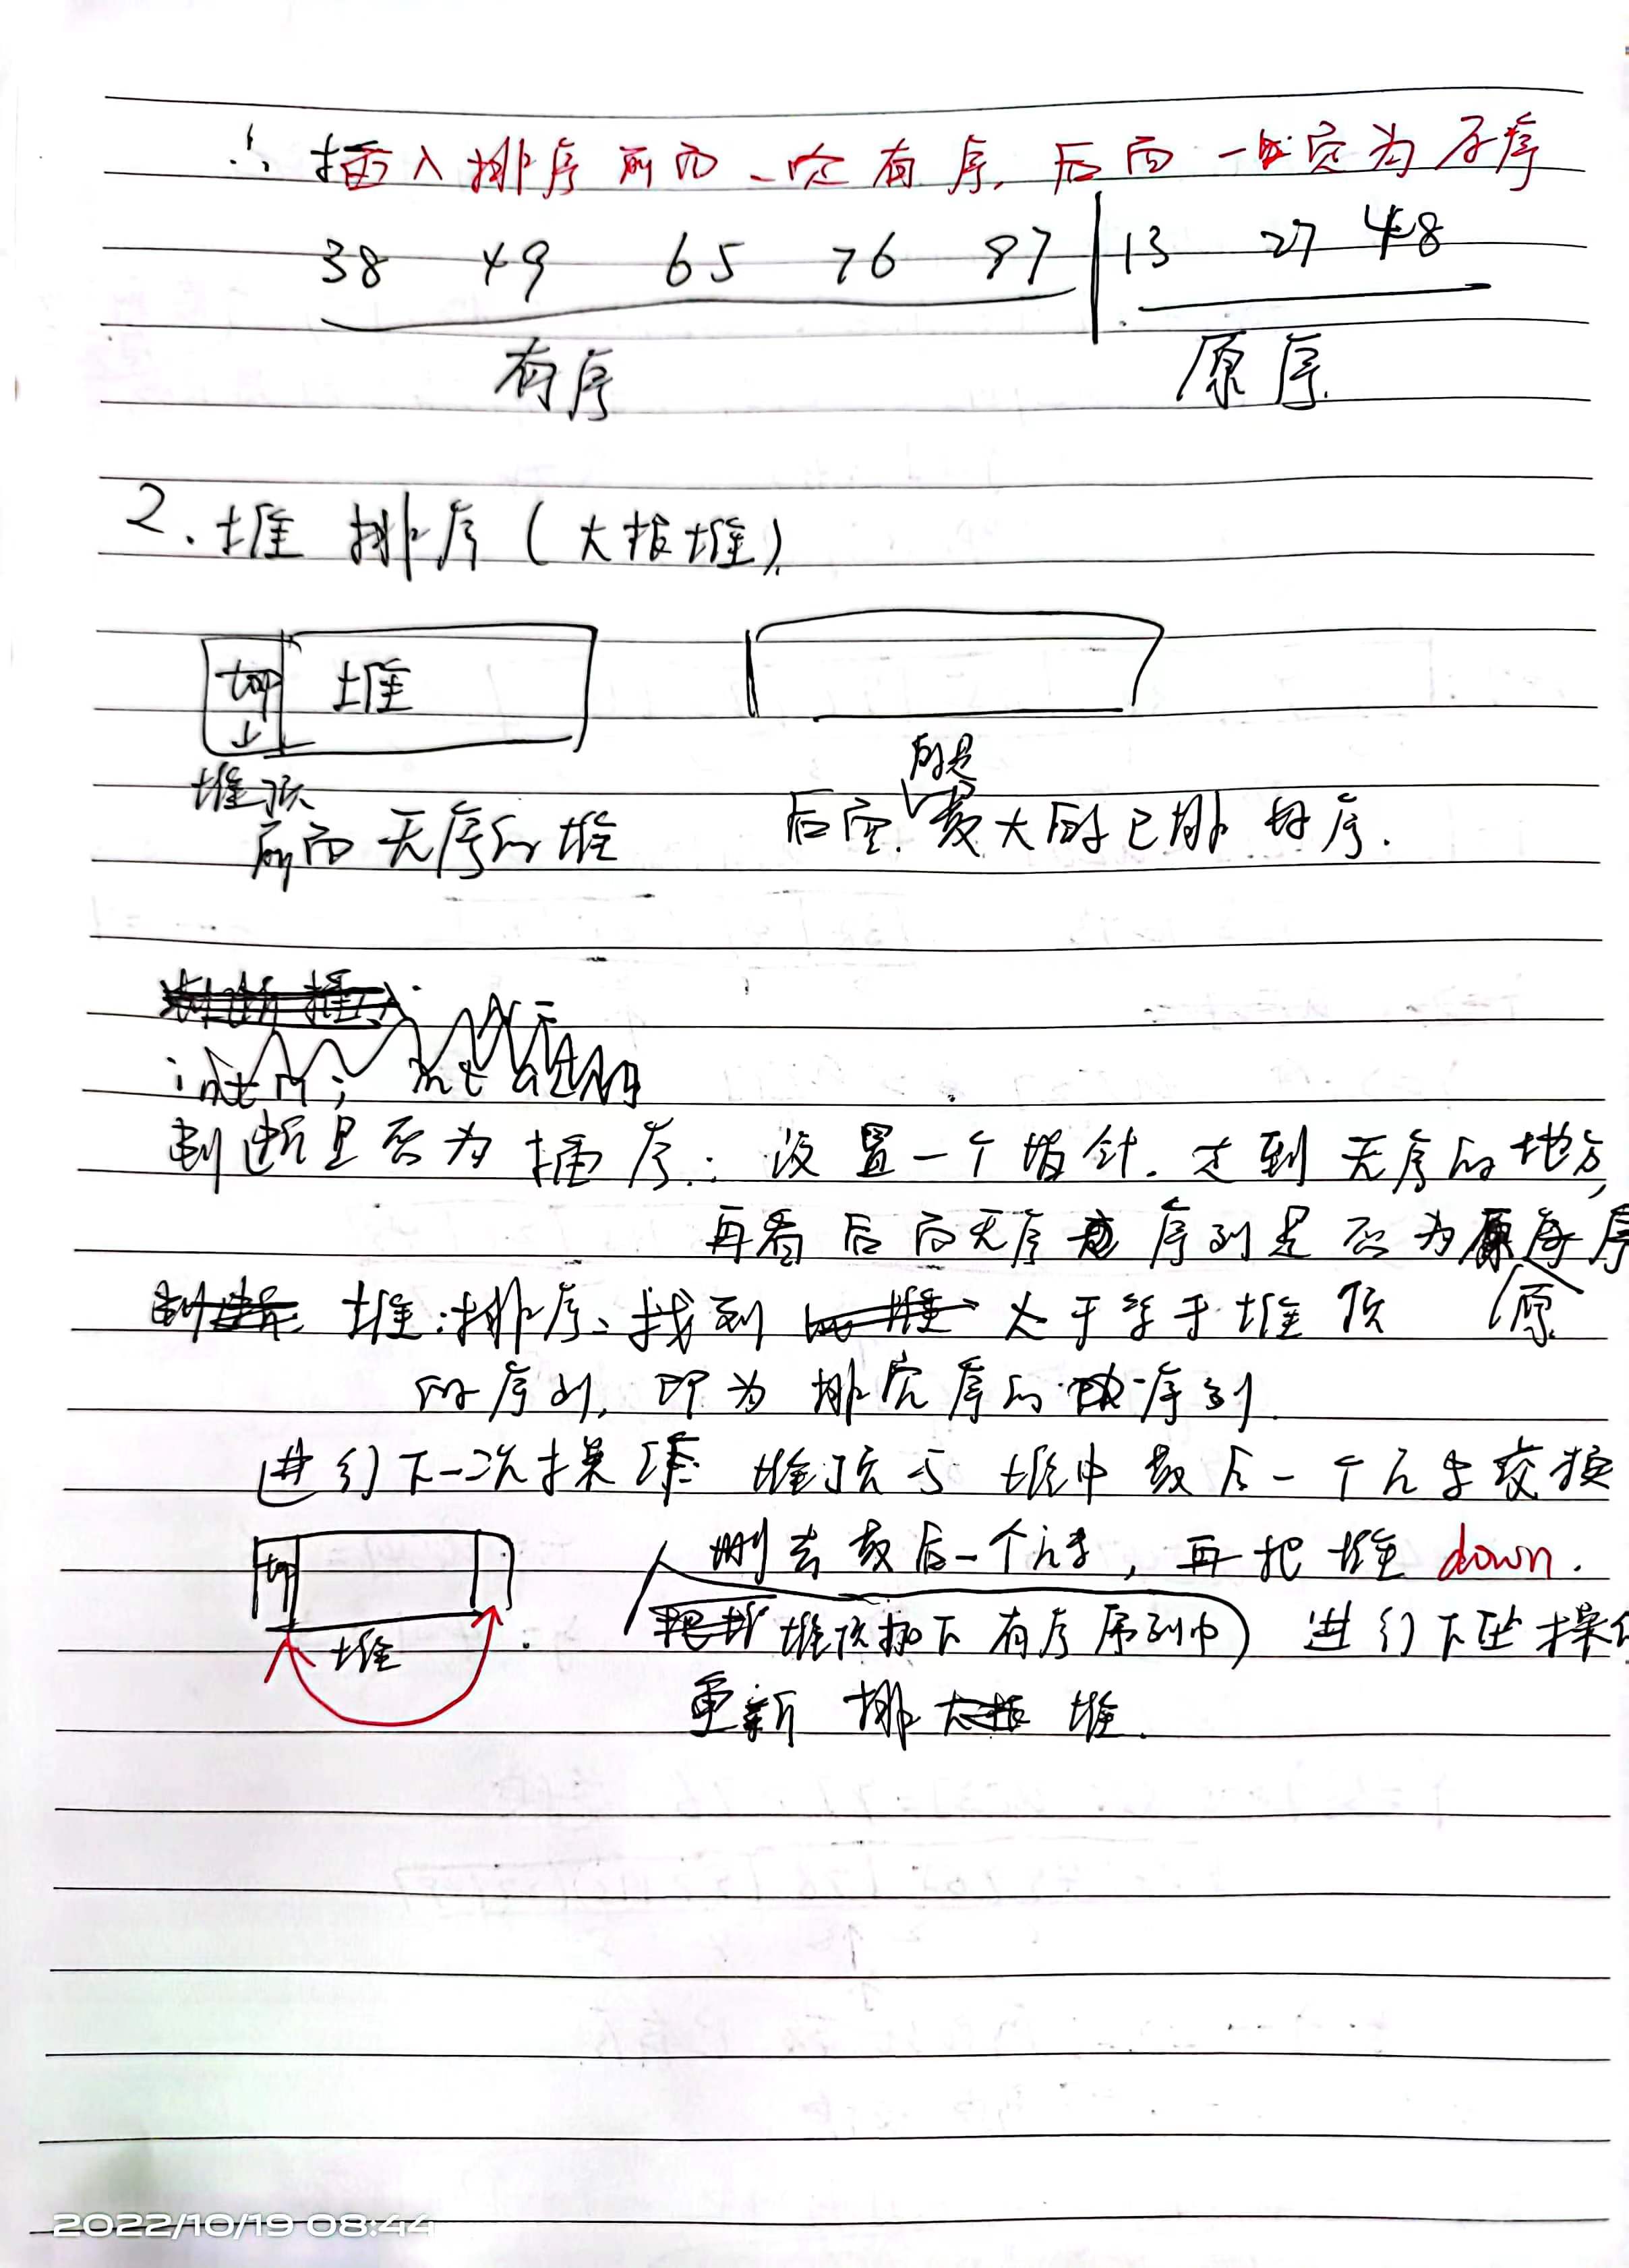 ∴ 插入排序前面一定有序, 后面一定为原序
38 49 65 76 97 | 13 27 48
有序 原序
2. 堆排序(大根堆)
top 堆
堆顶
前面无序的堆 后面的是最大的已排好序.
int n; int
判断是否为插序: 设置一个指针. 走到无序的地方,
再看后面无序序列是否为原序
堆排序: 找到大于等于堆顶 原
的序列, 即为排完序的序列.
进行下一次操作 堆顶与堆中最后一个元素交换
top 删去最后一个元素, 再把堆 down.
堆 堆顶换下有序序列中) 进行下坠操作
重新排堆.
2022/10/19 08:44